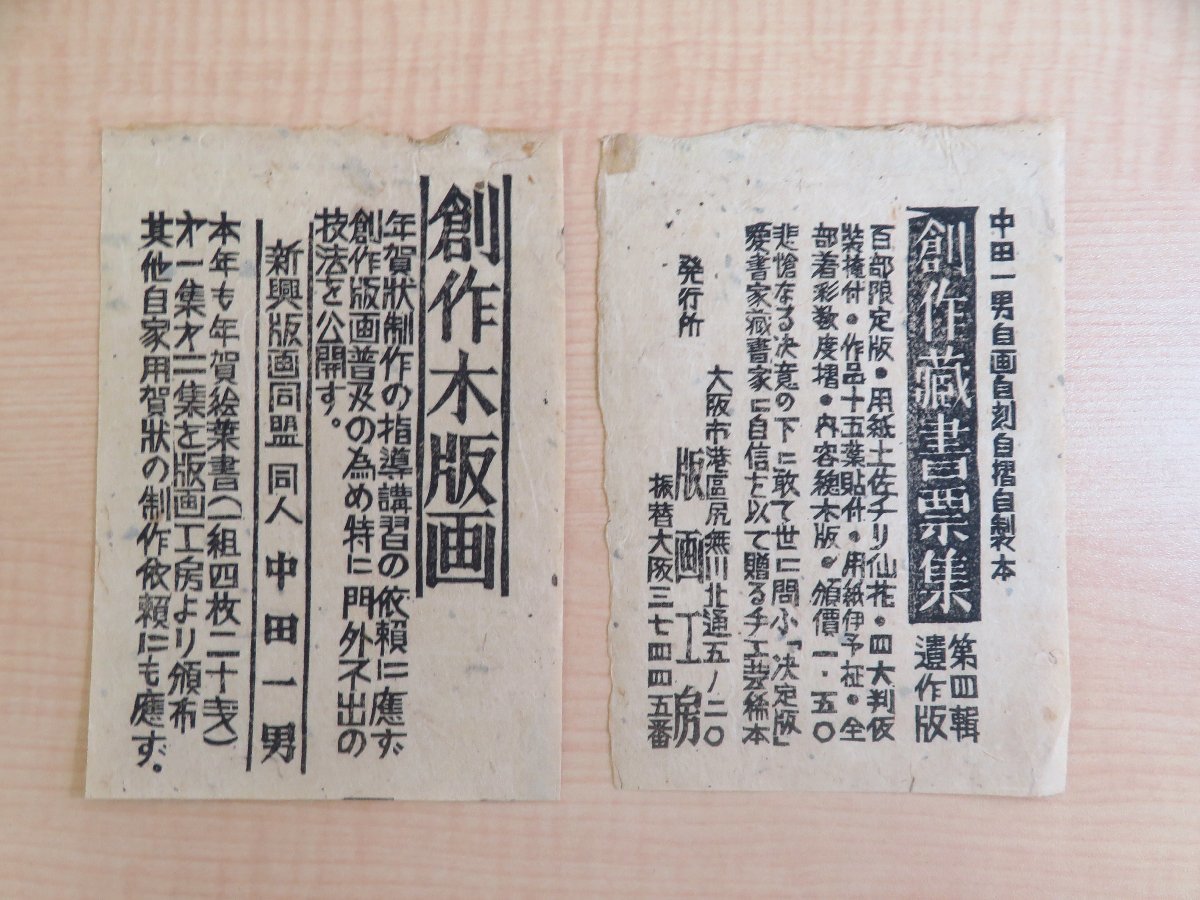 中田一男自画自刻自摺自製本
創作藏書票集
第四輯
遺作版
百部限定版・用紙土佐チリ仙花・四大判仮
装掩付・作品十五葉貼付・用紙伊予祉・全
部着彩数度摺・内容總木版・頒價一・五〇
悲愴なる決意の下に敢て世に問ふ「決定版」
愛書家藏書家に自信を以て贈る手工芸絲本
発行所
大阪市港區尻無川北通五ノ二〇
版画工房
振替大阪三七四四五番
創作木版画
年賀狀制作の指導講習の依頼に應ず
創作版画普及の為め特に門外不出の
技法を公開す。
新興版画同盟同人 中田一男
本年も年賀絵葉書(一組四枚二十戋)
才一集才二集を版画工房より頒布
其他自家用賀狀の制作依賴にも應ず。